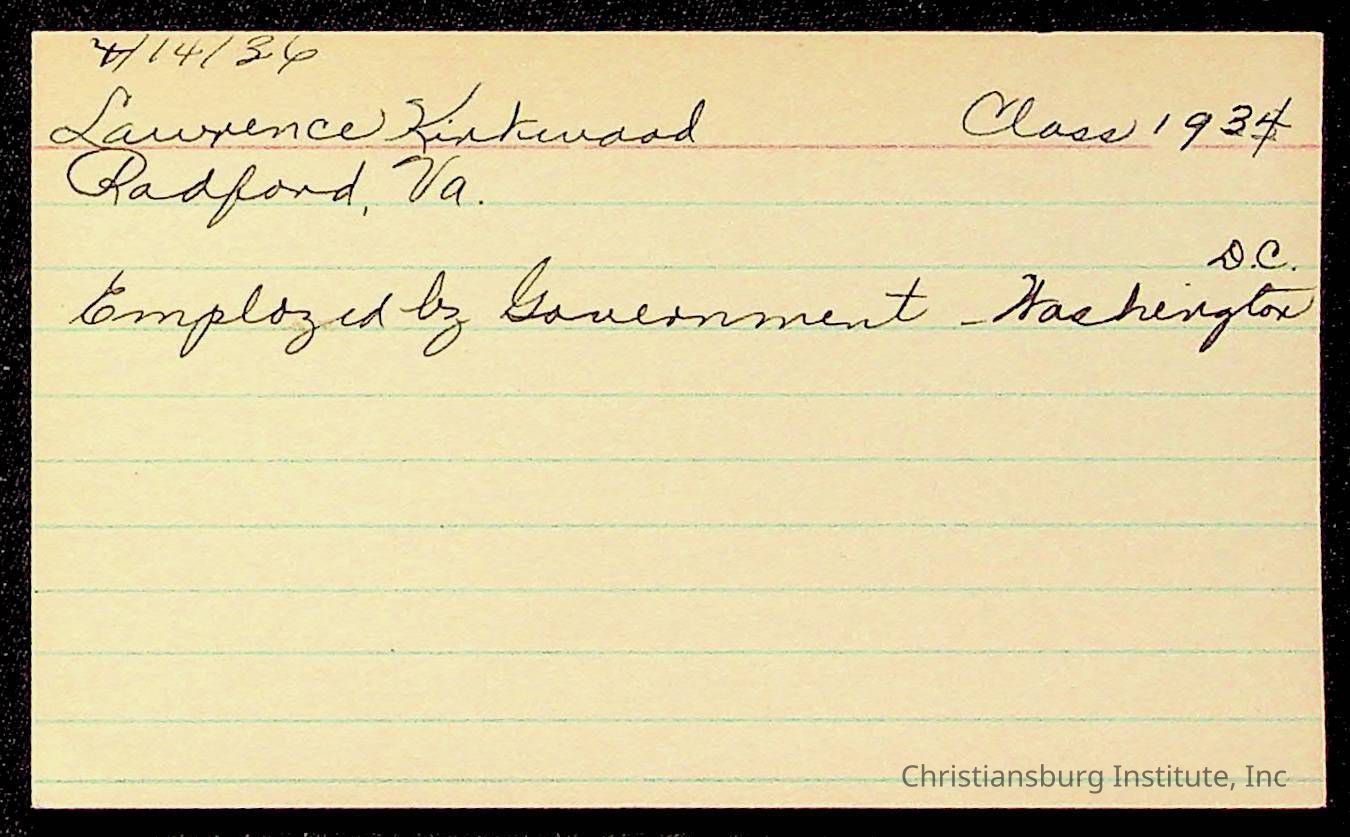 4/14/36
Lawrence Kirkwood Class 1934
Radford, Va.
D.C.
Employed by Government - Washington
Christiansburg Institute, Inc